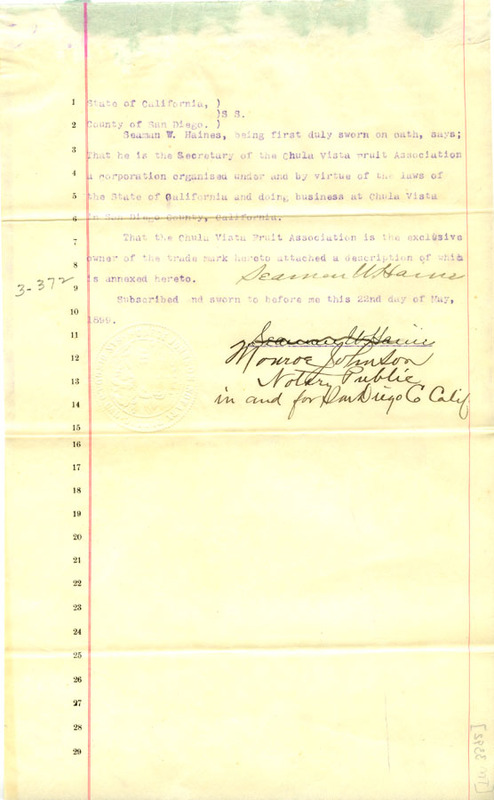 1 State of California, )
)S S.
2 County of San Diego. )
Seaman W. Haines, being first duly sworn on oath, says;
3
That he is the Secretary of the Chula Vista Fruit Association
4
a corporation organised under and by virtue of the laws of
5
the State of California and doing business at Chula Vista
6 in San Diego County, California.
7 That the Chula Vista Fruit Association is the exclusive
8 owner of the trade mark hereto attached a description of which
3-372
9 is annexed hereto. Seaman W Haines
10 Subscribed nd sworn to before me this 22nd day of May,
1899.
11 Seaman W Haines
12 Monroe Johnson
13 Notary Public
14 in and for San Diego Co Calif
15
16
17
18
19
20
21
22
23
24
25
26
27
28
29
[TM 3395]